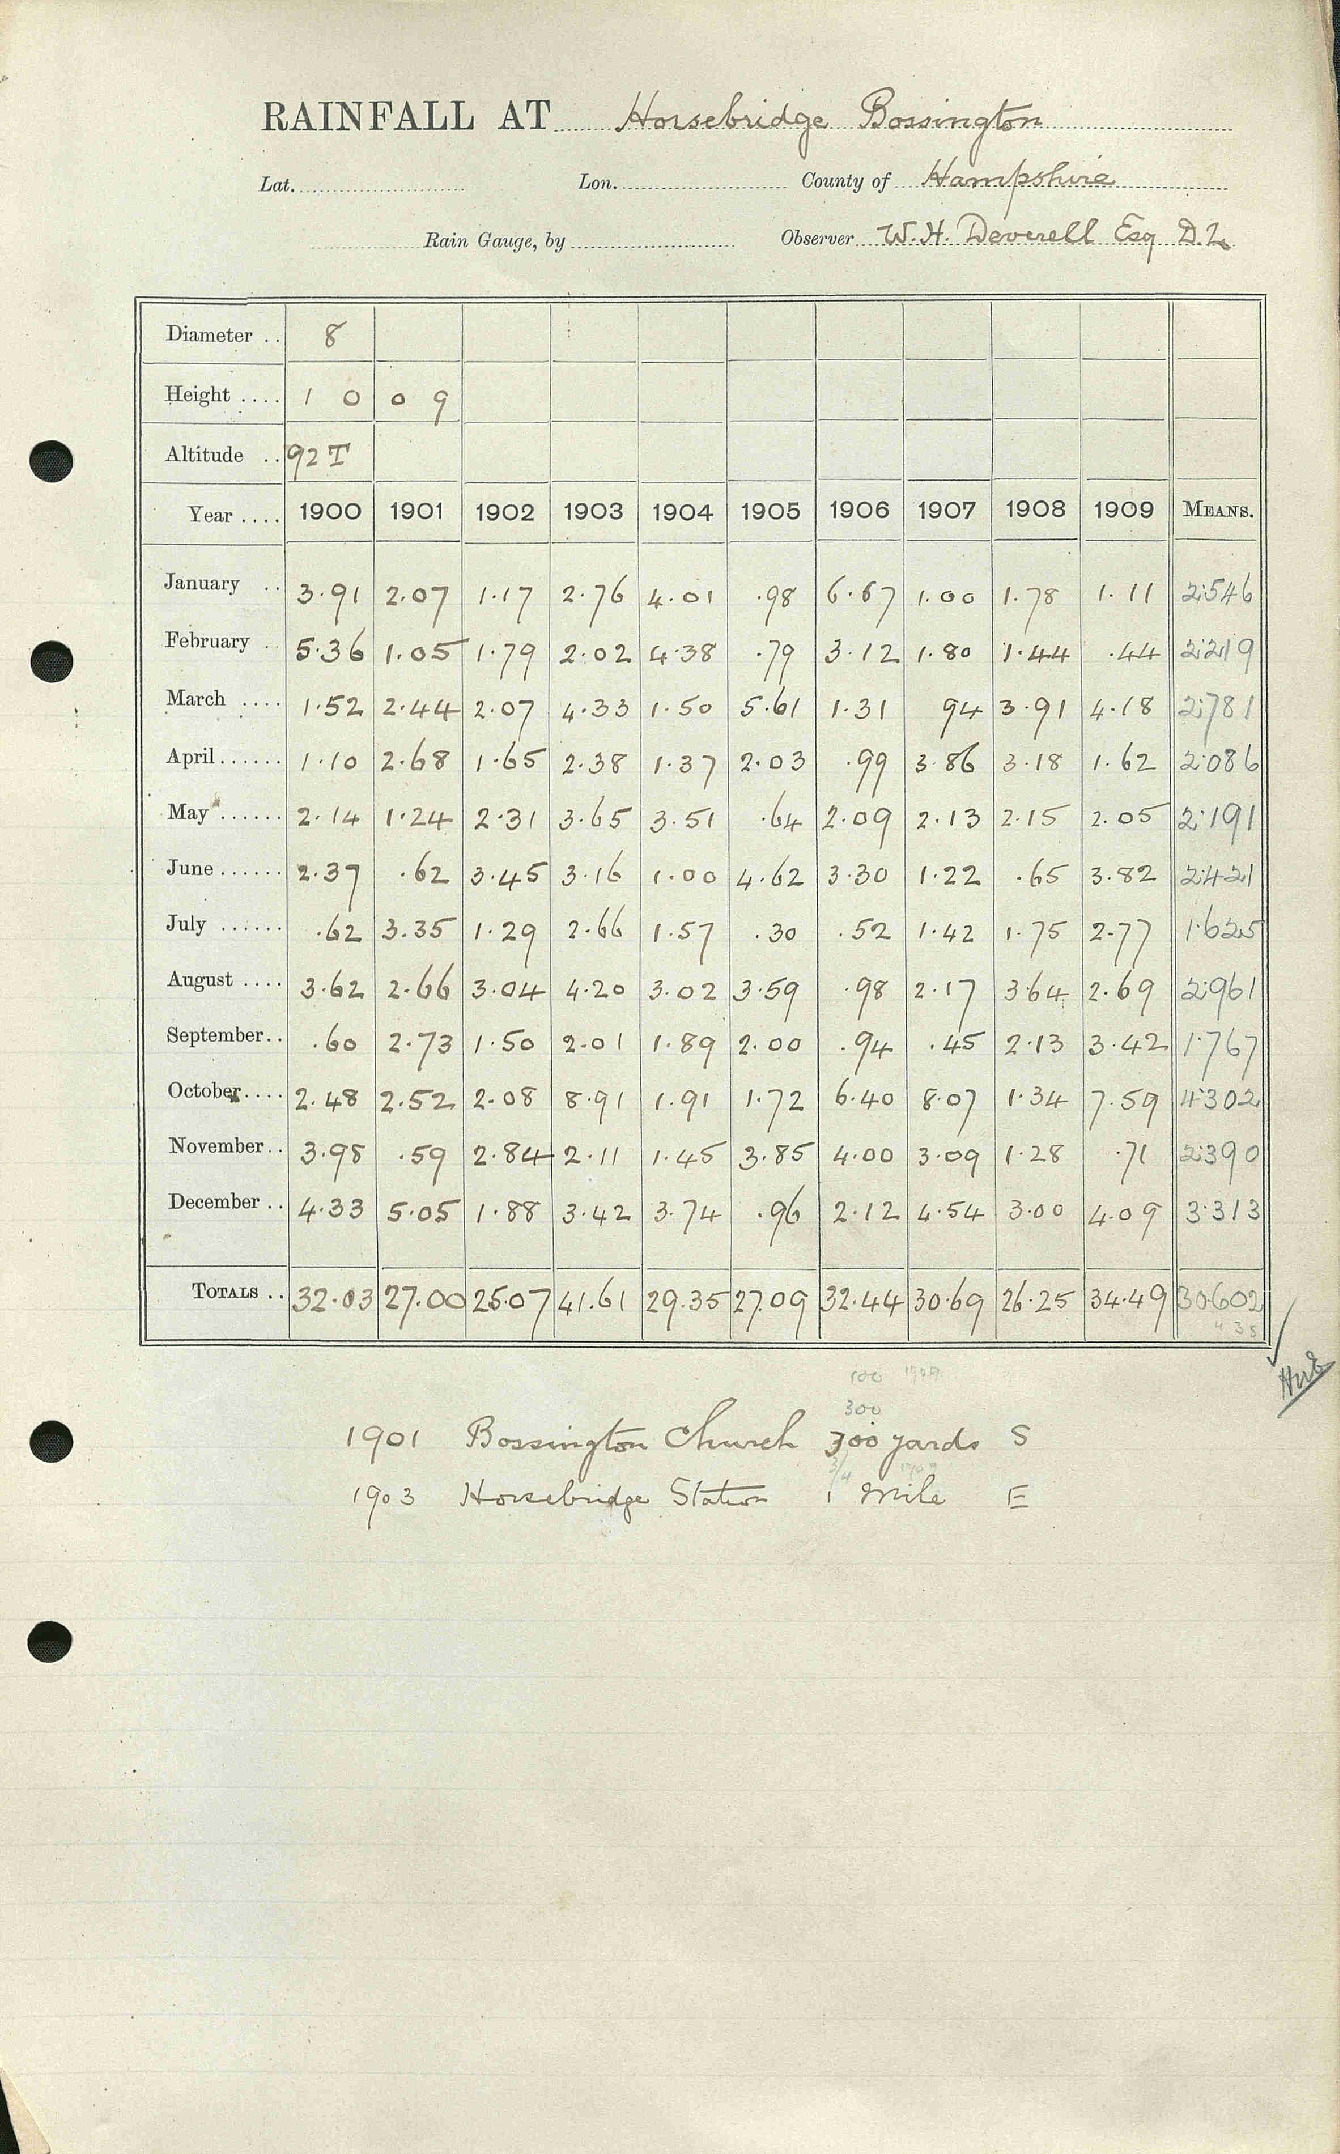 RAINFALL AT Horsebridge Bossington
Lat. Lon. County of Hampshire
Rain Gauge, by Observer W. H. Deverell Esq D.L
Diameter .. 8
Height .... 1 0 0 9
Altitude .. 92 T
Year .... 1900 1901 1902 1903 1904 1905 1906 1907 1908 1909 MEANS.
January .. 3.91 2.07 1.17 2.76 4.01 .98 6.67 1.00 1.78 1.11 2.546
February .. 5.36 1.05 1.79 2.02 4.38 .79 3.12 1.80 1.44 .44 2.219
March .... 1.52 2.44 2.07 4.33 1.50 5.61 1.31 94 3.91 4.18 2.781
April ...... 1.10 2.68 1.65 2.38 1.37 2.03 .99 3.86 3.18 1.62 2.086
May ...... 2.14 1.24 2.31 3.65 3.51 .64 2.09 2.13 2.15 2.05 2.191
June ...... 2.37 .62 3.45 3.16 1.00 4.62 3.30 1.22 .65 3.82 2.421
July ...... .62 3.35 1.29 2.66 1.57 .30 .52 1.42 1.75 2.77 1.625
August .... 3.62 2.66 3.04 4.20 3.02 3.59 .98 2.17 3.64 2.69 2.961
September .. .60 2.73 1.50 2.01 1.89 2.00 .94 .45 2.13 3.42 1.767
October .... 2.48 2.52 2.08 8.91 1.91 1.72 6.40 8.07 1.34 7.59 4.302
November .. 3.98 .59 2.84 2.11 1.45 3.85 4.00 3.09 1.28 .71 2.390
December .. 4.33 5.05 1.88 3.42 3.74 .96 2.12 4.54 3.00 4.09 3.313
TOTALS .. 32.03 27.00 25.07 41.61 29.35 27.09 32.44 30.69 26.25 34.49 30.602
300
1901 Bossington Church 300 yards S
3/4
1903 Horsebridge Station 1 Mile E